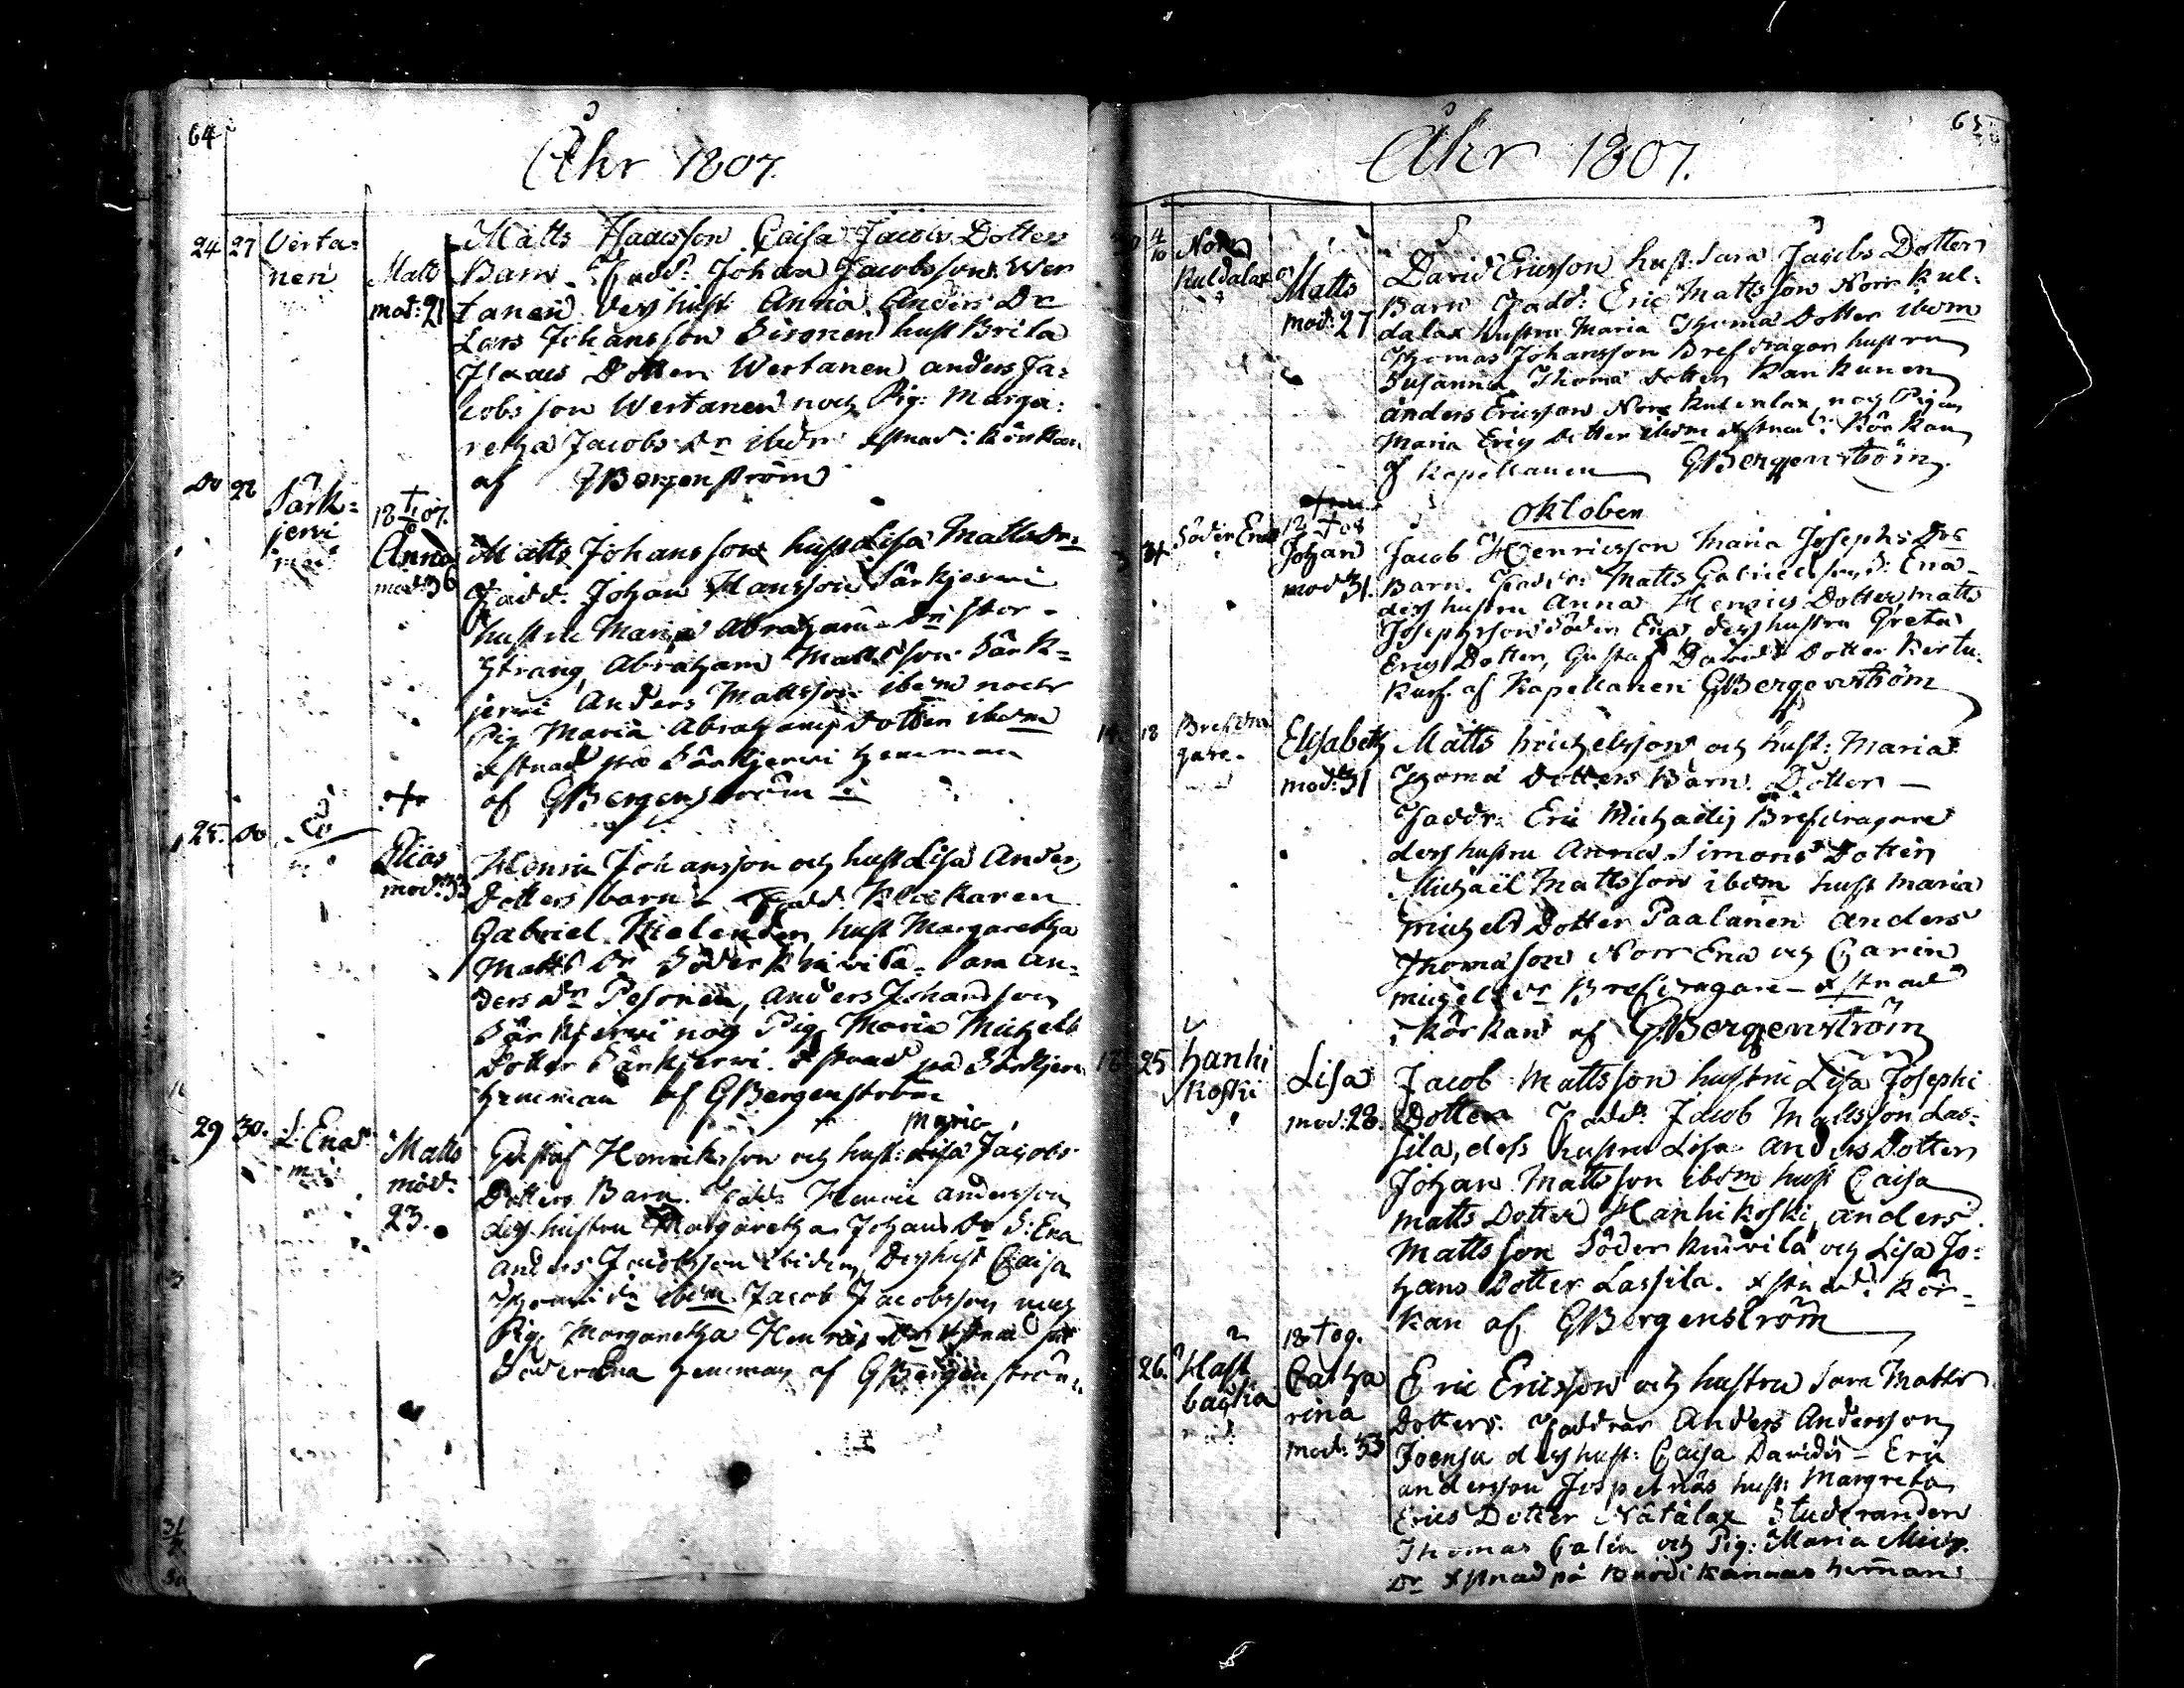 64
Åhr 1807.
24 27 Verta=
nen
Matts
mod: 21
Matts Isacsson Caisa Jacobs Dotters
Barn. Fadd: Johan Jacobsson Wer
tanen dess hust Anna Anders Dr
Lars Johansson Sironen hust Brita
Isaacs Dotter Wertanen anders Ja=
cobsson Wertanen och Pig: Marga=
retha Jacobs Dr ibdm xstnad i Körkan
af GBergenström
Do 28 Särk=
jerwi
18 † 07.
Anna
mod: 36
Matts Johansson hust Lisa Matts Dr
Fadd. Johan Hansson Särkjerwi
hustru Maria Abrahams Dr Stor-
Strang, Abraham Mattsson Särk=
jerwi Anders Mattsson ibdm och
Pig Maria Abrahams Dotter ibdm
xstnad på Särkjerwi Hemman
af GBergenström
28. Do Do
Elias
mod: 33
Henric Johansson och hust Lisa Anders
Dotters barn - Fadd. Klockaren
Gabriel Melender, hust Margaretha
Matts Dr Söder An=
ders Dr Pesonen, Anders Johansson
Särkjerwi och Pig Maria Michels
Dotter Särkjerwi. xstnad på Särkjerw
Hemman af GBergenström
29 30. S. Ena
Matts
mod:
23.
Maria
Gustaf Henriksson och hust: Lisa Jacobs
Dotters Barn. Fadd: Henric andersson
dess hustru Margaretha Johans Dr S: Ena
anders Jacobsson ibidem, Dess hust Caisa
ibdm Jacob Jacobsson och
Pig Margaretha Henrics Dr xstnad på
Söder Ena Hemman af GBergenström
65
Åhr 1807.
4
10
Norr
Kuldalax
Matts
mod: 27
David Ericsson hust: Sara Jacobs Dotters
Barn Fadd: Eric Mattsson Norr Kul=
dalax hustru Maria Thoma Dotter ibdm
Thomas Johansson Brefdragar hustru
Susanna Thoma Dotter Kankunen
anders Ericsson Norr Kuldalax och Pigan
Maria Erics Dotter ibdm xstnad i Körkan
af Kapellanen GBergenström.
Oktober
Söder Ena
18 † 08
Johan
mod 31.
Jacob Henricsson Maria Josephs Drs
Barn. Faddr: Matts Gabrielsson S: Ena-
dess hustru Anna Henrics Dotter, Matts
Josephsson Söder Ena, dess hustru Greta
Erics Dotter, Gustaf Davids Dotter Kertu.
kusf. af Kapellanen GBergenström
14 18 Brefdra
gare.
Elisabeth
mod: 31
Matts Michelsson och hust: Maria
Thoma Dotters Barn. Dotter -
Faddr: Eric Michaelis Brefdragare
dess hustru Anna Simons Dotter
Michaël Mattsson ibdm hust Maria
Michels Dotter Paalanen Anders
Thomasson Norr Ena och Carin
Michels Dr Brefdragare - xstnad
i Körkan af GBergenström
18 25 Hanhi
koski
Lisa
mod: 28.
Jacob Mattsson hustru Lisa Josephs
Dotter Fadd: Jacob Mattsson Las=
sila, dess hustru Lisa Anders Dotter
Johan Mattsson ibdm hust Caisa
Matts Dotter Hanhikoski, anders
Mattsson Söder Kuivila och Lisa Jo=
hans Dotter Lassila. xstnad i Kör-
kan af GBergenström
26. Hast
backa
18 † 09.
Catha
rina
mod: 33
Eric Ericsson och hustru Sara Matts
Dotters. Faddrar Anders Andersson
Joensu dess hust: Caisa Davids - Eric
andersson Jespelnäs hust: Margreta
Erics Dotter Nätälax Studeranden
Thomas Calin och Pig: Maria Mich.
Dr xstnad på hemman